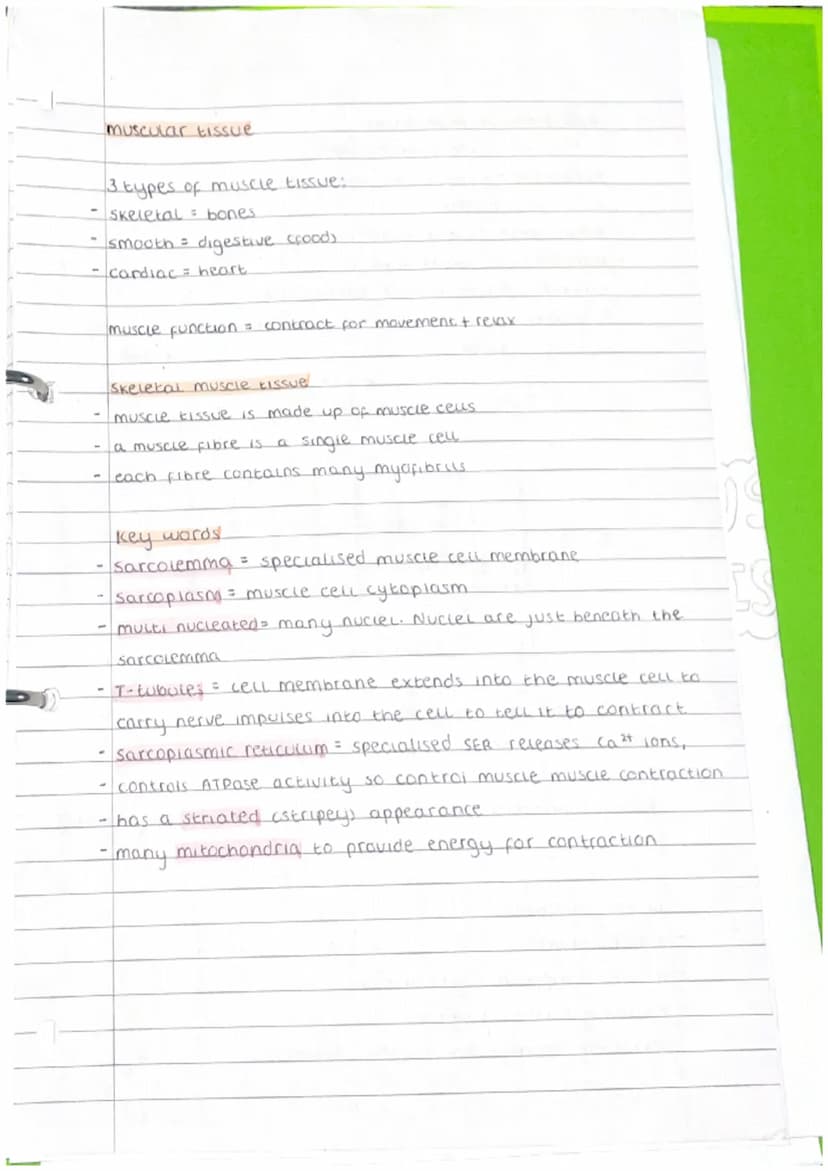 muscular tissue
3 types of muscle tissue:
- skeletal = bones
- smooth = digestive (food)
- cardiac = heart
muscle function = contract for movement + relax
skeletal muscle tissue
- muscle tissue is made up of muscle cells
- a muscle fibre is a single muscle cell
- each fibre contains many myofibrils
key words
- sarcolemma = specialised muscle cell membrane
- sarcoplasm = muscle cell cytoplasm
- multi nucleated = many nuclei. Nuclei are just beneath the
sarcolemma
- T-tubules = cell membrane extends into the muscle cell to
carry nerve impulses into the cell to tell it to contract
- sarcoplasmic reticulum = specialised SER releases Ca²⁺ ions,
- controls ATPase activity so control muscle muscle contraction
- has a striated (stripey) appearance
- many mitochondria to provide energy for contraction